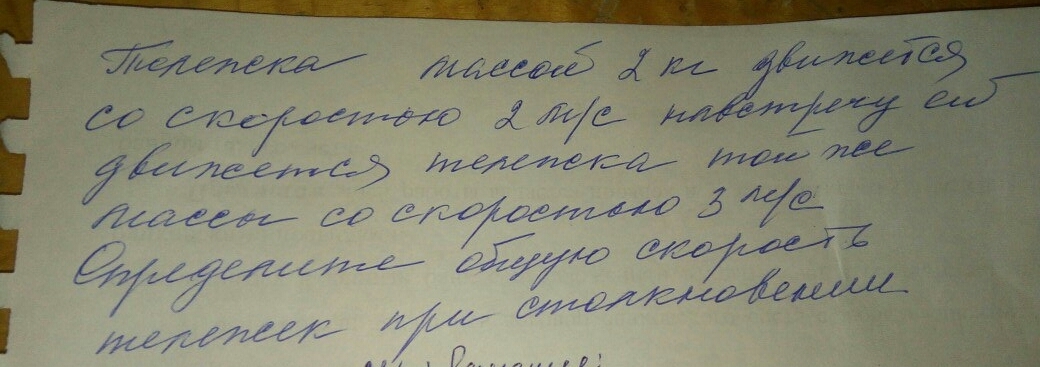 Тележка массой 2 кг движется
со скоростью 2 м/с навстречу ей
движется тележка той же
массы со скоростью 3 м/с
Определите общую скорость
тележек при столкновении